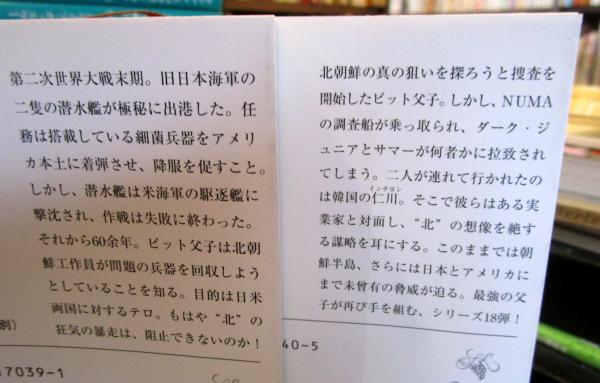 第二次世界大戦末期。旧日本海軍の
二隻の潜水艦が極秘に出港した。任
務は搭載している細菌兵器をアメリ
カ本土に着弾させ、降服を促すこと。
しかし、潜水艦は米海軍の駆逐艦に
撃沈され、作戦は失敗に終わった。
それから60余年。ピット父子は北朝
鮮工作員が問題の兵器を回収しよう
としていることを知る。目的は日米
両国に対するテロ。もはや“北”の
狂気の暴走は、阻止できないのか!
別)
17039-1
北朝鮮の真の狙いを探ろうと捜査を
開始したピット父子。しかし、NUMA
の調査船が乗っ取られ、ダーク・ジ
ュニアとサマーが何者かに拉致され
てしまう。二人が連れて行かれたの
は韓国の仁川。そこで彼らはある実
インチョン
業家と対面し、“北”の想像を絶す
る謀略を耳にする。このままでは朝
鮮半島、さらには日本とアメリカに
まで未曾有の脅威が迫る。最強の父
子が再び手を組む、シリーズ18弾!
40-5